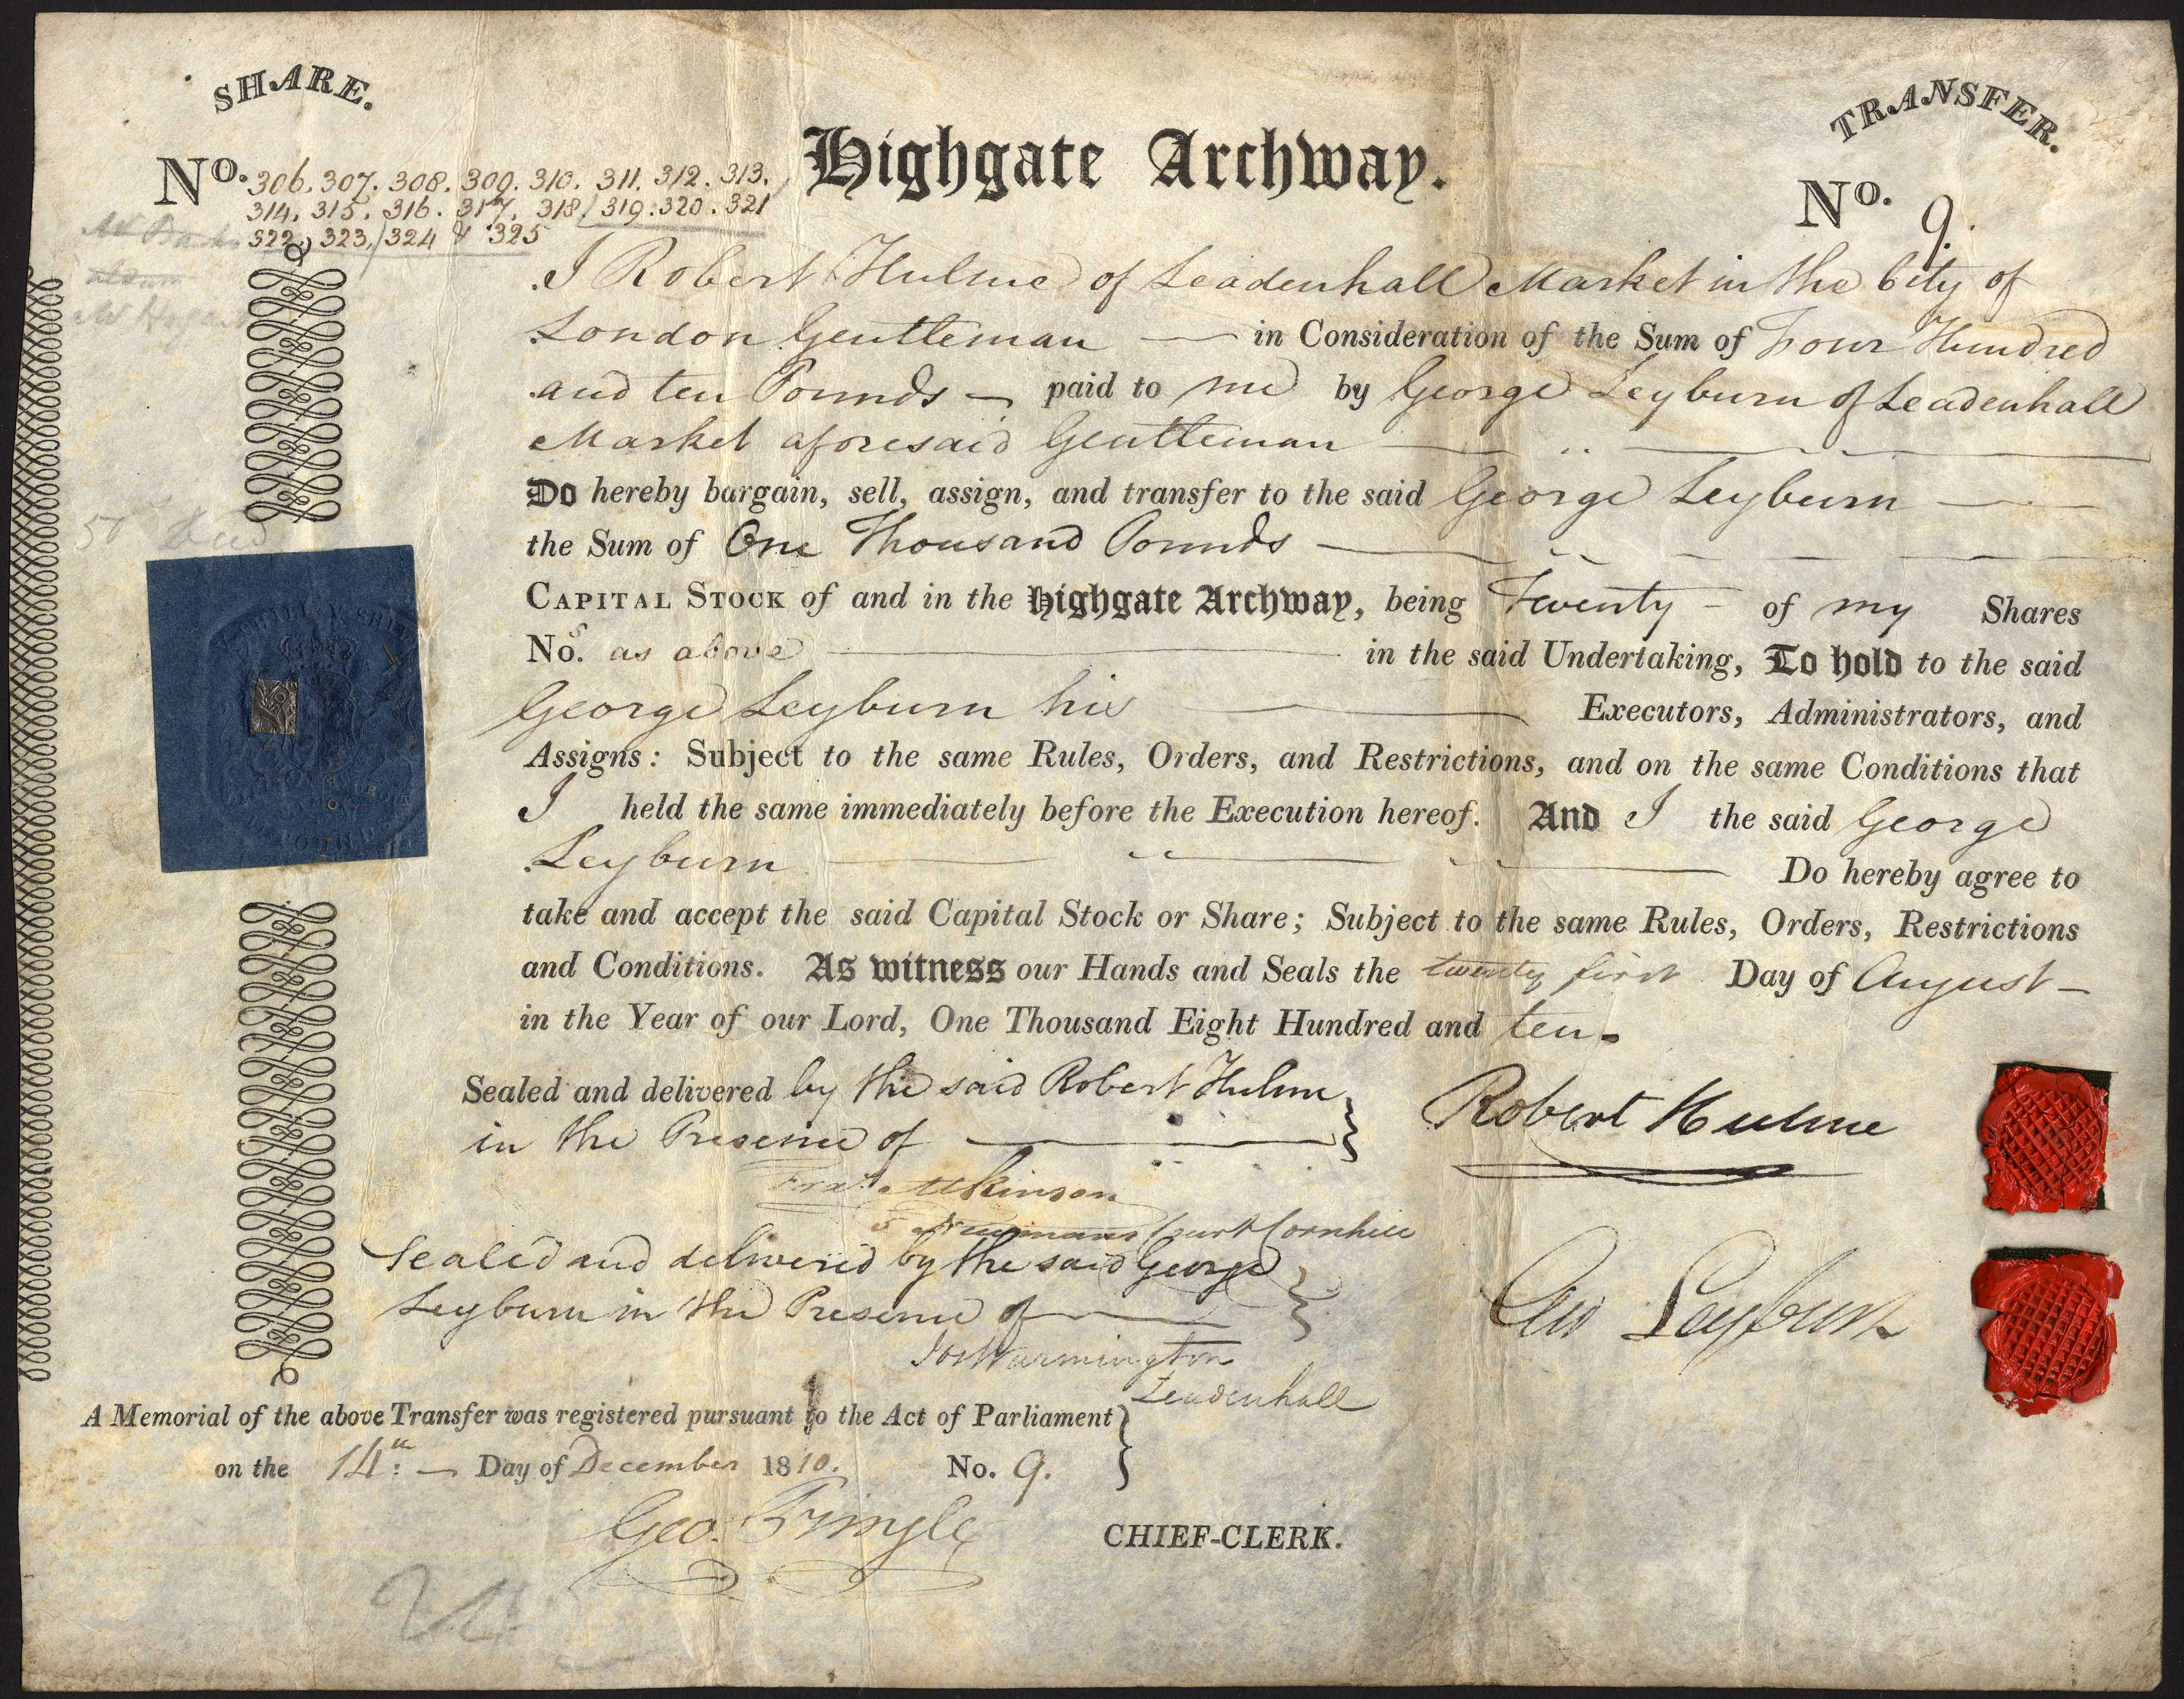 SHARE.
TRANSFER.
Highgate Archway.
No. 306. 307. 308. 309. 310. 311. 312. 313.
314. 315. 316. 317. 318. 319. 320. 321
322, 323, 324 & 325
No. 9.
I Robert Hulme of Leadenhall Market in the City of
London Gentleman in Consideration of the Sum of Four Hundred
and ten Pounds paid to me by George Leyburn of Leadenhall
Market aforesaid Gentleman
Do hereby bargain, sell, assign, and transfer to the said George Leyburn
the Sum of One Thousand Pounds
CAPITAL STOCK of and in the Highgate Archway, being Twenty of my Shares
Nos. as above in the said Undertaking, To hold to the said
George Leyburn his Executors, Administrators, and
Assigns: Subject to the same Rules, Orders, and Restrictions, and on the same Conditions that
I held the same immediately before the Execution hereof. And I the said George
Leyburn Do hereby agree to
take and accept the said Capital Stock or Share; Subject to the same Rules, Orders, Restrictions
and Conditions. As witness our Hands and Seals the twenty first Day of August
in the Year of our Lord, One Thousand Eight Hundred and ten.
Sealed and delivered by the said Robert Hulme
in the Presence of
Robert Hulme
Fras. Atkinson
5 Newmans Court Cornhill
Sealed and delivered by the said George
Leyburn in the Presence of
Geo Leyburn
Jos Warmington
Leadenhall
A Memorial of the above Transfer was registered pursuant to the Act of Parliament
on the 14th. Day of December 1810. No. 9.
Geo. Pringle CHIEF-CLERK.